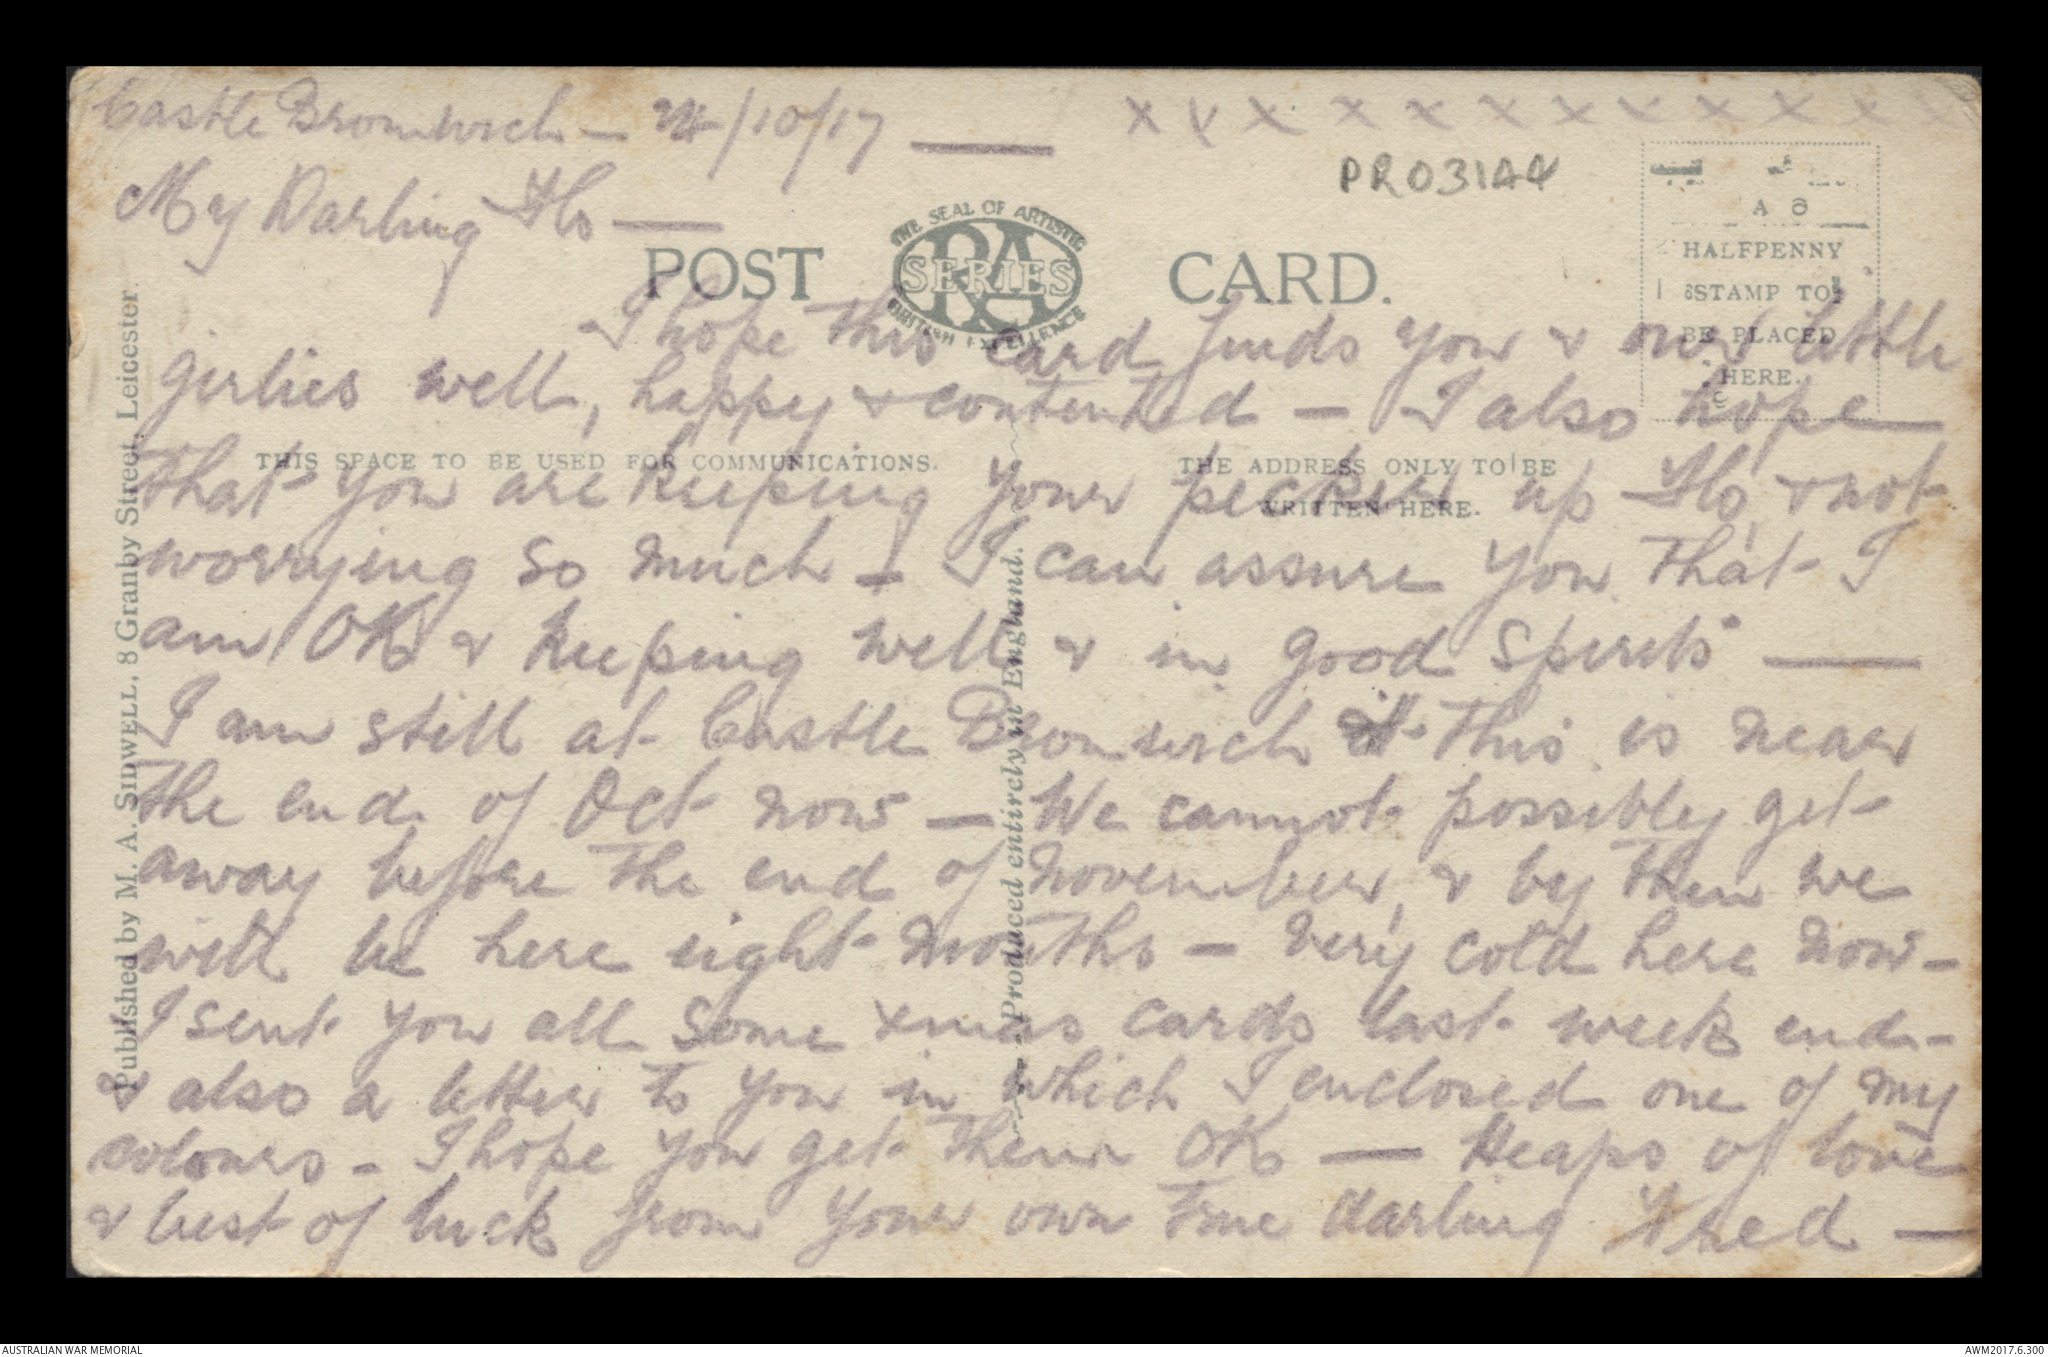 Castle Bromwich — 24/10/17 —— x x x x x x x x x x x x
My Darling Flo —
PRO3144
POST CARD.
THE SEAL OF ARTISTIC
RA SERIES
BRITISH EXCELLENCE
HALFPENNY
STAMP TO
BE PLACED
HERE.
I hope this card finds you & our little
girlies well, happy & contented — I also hope
THIS SPACE TO BE USED FOR COMMUNICATIONS.
THE ADDRESS ONLY TO BE
WRITTEN HERE.
that you are keeping your pecker up Flo, & not
worrying so much — I can assure you that I
am OK & keeping well & in good spirits ——
I am still at Castle Bromwich & this is near
the end of Oct now — We cannot possibly get
away before the end of November, & by then we
will be here eight months — very cold here now —
I sent you all some xmas cards last week end —
& also a letter to you in which I enclosed one of my
colours — I hope you get them OK — Heaps of love
& best of luck from your own true darling Fred —
Published by M. A. SIDWELL, 8 Granby Street, Leicester.
Produced entirely in England.
AUSTRALIAN WAR MEMORIAL
AWM2017.6.300